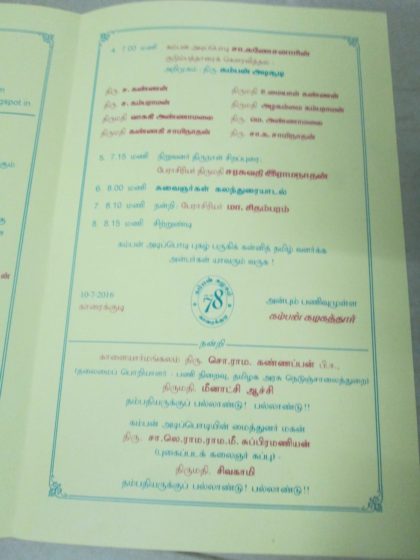 4. 7.00 மணி கம்பன் அடிப்பொடி சா.கணேசனாரின்
குடும்பத்தாரைக் கௌரவித்தல் -
அறிமுகம் : திரு கம்பன் அடிசூடி
திரு ச. கண்ணன் திருமதி உமையாள் கண்ணன்
திரு ச. கம்பராமன் திருமதி அழகம்மை கம்பராமன்
திருமதி வாசுகி அண்ணாமலை திரு. மெ. அண்ணாமலை
திருமதி கண்ணகி சாமிநாதன் திரு. சா.க. சாமிநாதன்
5. 7.15 மணி நிறுவனர் திருநாள் சிறப்புரை:
பேராசிரியர் திருமதி சரசுவதி இராமநாதன்
6. 8.00 மணி சுவைஞர்கள் கலந்துரையாடல்
7. 8.10 மணி நன்றி : பேராசிரியர் மா. சிதம்பரம்
8. 8.15 மணி சிற்றுண்டி
கம்பன் அடிப்பொடி புகழ் பருகிக் கன்னித் தமிழ் வளர்க்க
அன்பர்கள் யாவரும் வருக !
10-7-2016
காரைக்குடி
கம்பன் கழகம்
78
காரைக்குடி
அன்பும் பணிவுமுள்ள
கம்பன் கழகத்தார்
நன்றி
காளையார்மங்கலம் திரு. சொ.ராம. கண்ணப்பன் பி.இ.,
(தலைமைப் பொறியாளர் - பணி நிறைவு, தமிழக அரசு நெடுஞ்சாலைத்துறை)
திருமதி. மீனாட்சி ஆச்சி
தம்பதியருக்குப் பல்லாண்டு! பல்லாண்டு!!
கம்பன் அடிப்பொடியின் மைத்துனர் மகன்
திரு. சா.லெ.ராம.ராம.மீ. சுப்பிரமணியன்
(புகைப்படக் கலைஞர் சுப்பு) -
திருமதி. சிவகாமி
தம்பதியருக்குப் பல்லாண்டு! பல்லாண்டு!!